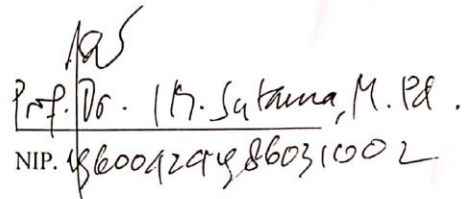 Prof. Dr. I K. Sutama, M. Pd.
NIP. 196004291986031002